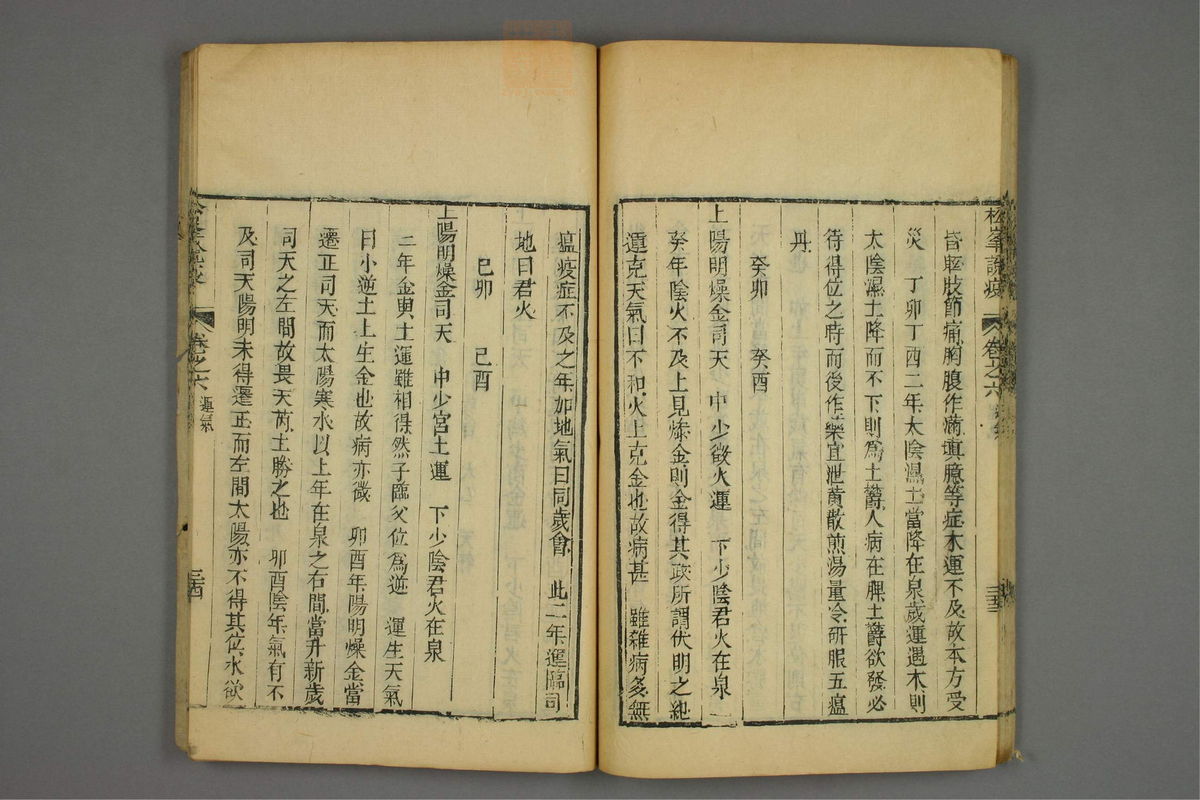 松峯說疫 卷之六
昏眩肢節痛胸腹作滿塡臆等症木運不及故本方受
災 丁卯丁酉二年太陰濕土當降在泉歲運遇木則
太陰濕土降而不下則爲土欝人病在脾土欝欲發必
待得位之時而後作藥宜泄黃散煎湯量冷研服五瘟
丹
癸卯 癸酉
上陽明燥金司天 中少徵火運 下少陰君火在泉 二
癸年陰火不及上見燥金則金得其政所謂伏明之紀
適克天氣曰不和火上克金也故病甚 雖雜病多無
瘟疫症不及之年加地氣曰同歲會 此二年運臨司
地曰君火
己卯 己酉
上陽明燥金司天 中少宮土運 下少陰君火在泉
二年金與土運雖相得然子臨父位爲逆 運生天氣
曰小逆土上生金也故病亦微 卯酉年陽明燥金當
遷正司天而太陽寒水以上年在泉之右間當升新歲
司天之左間故畏天芮土勝之也 卯酉陰年氣有不
及司天陽明未得遷正而左間太陽亦不得其位水欲
卷之六 運氣